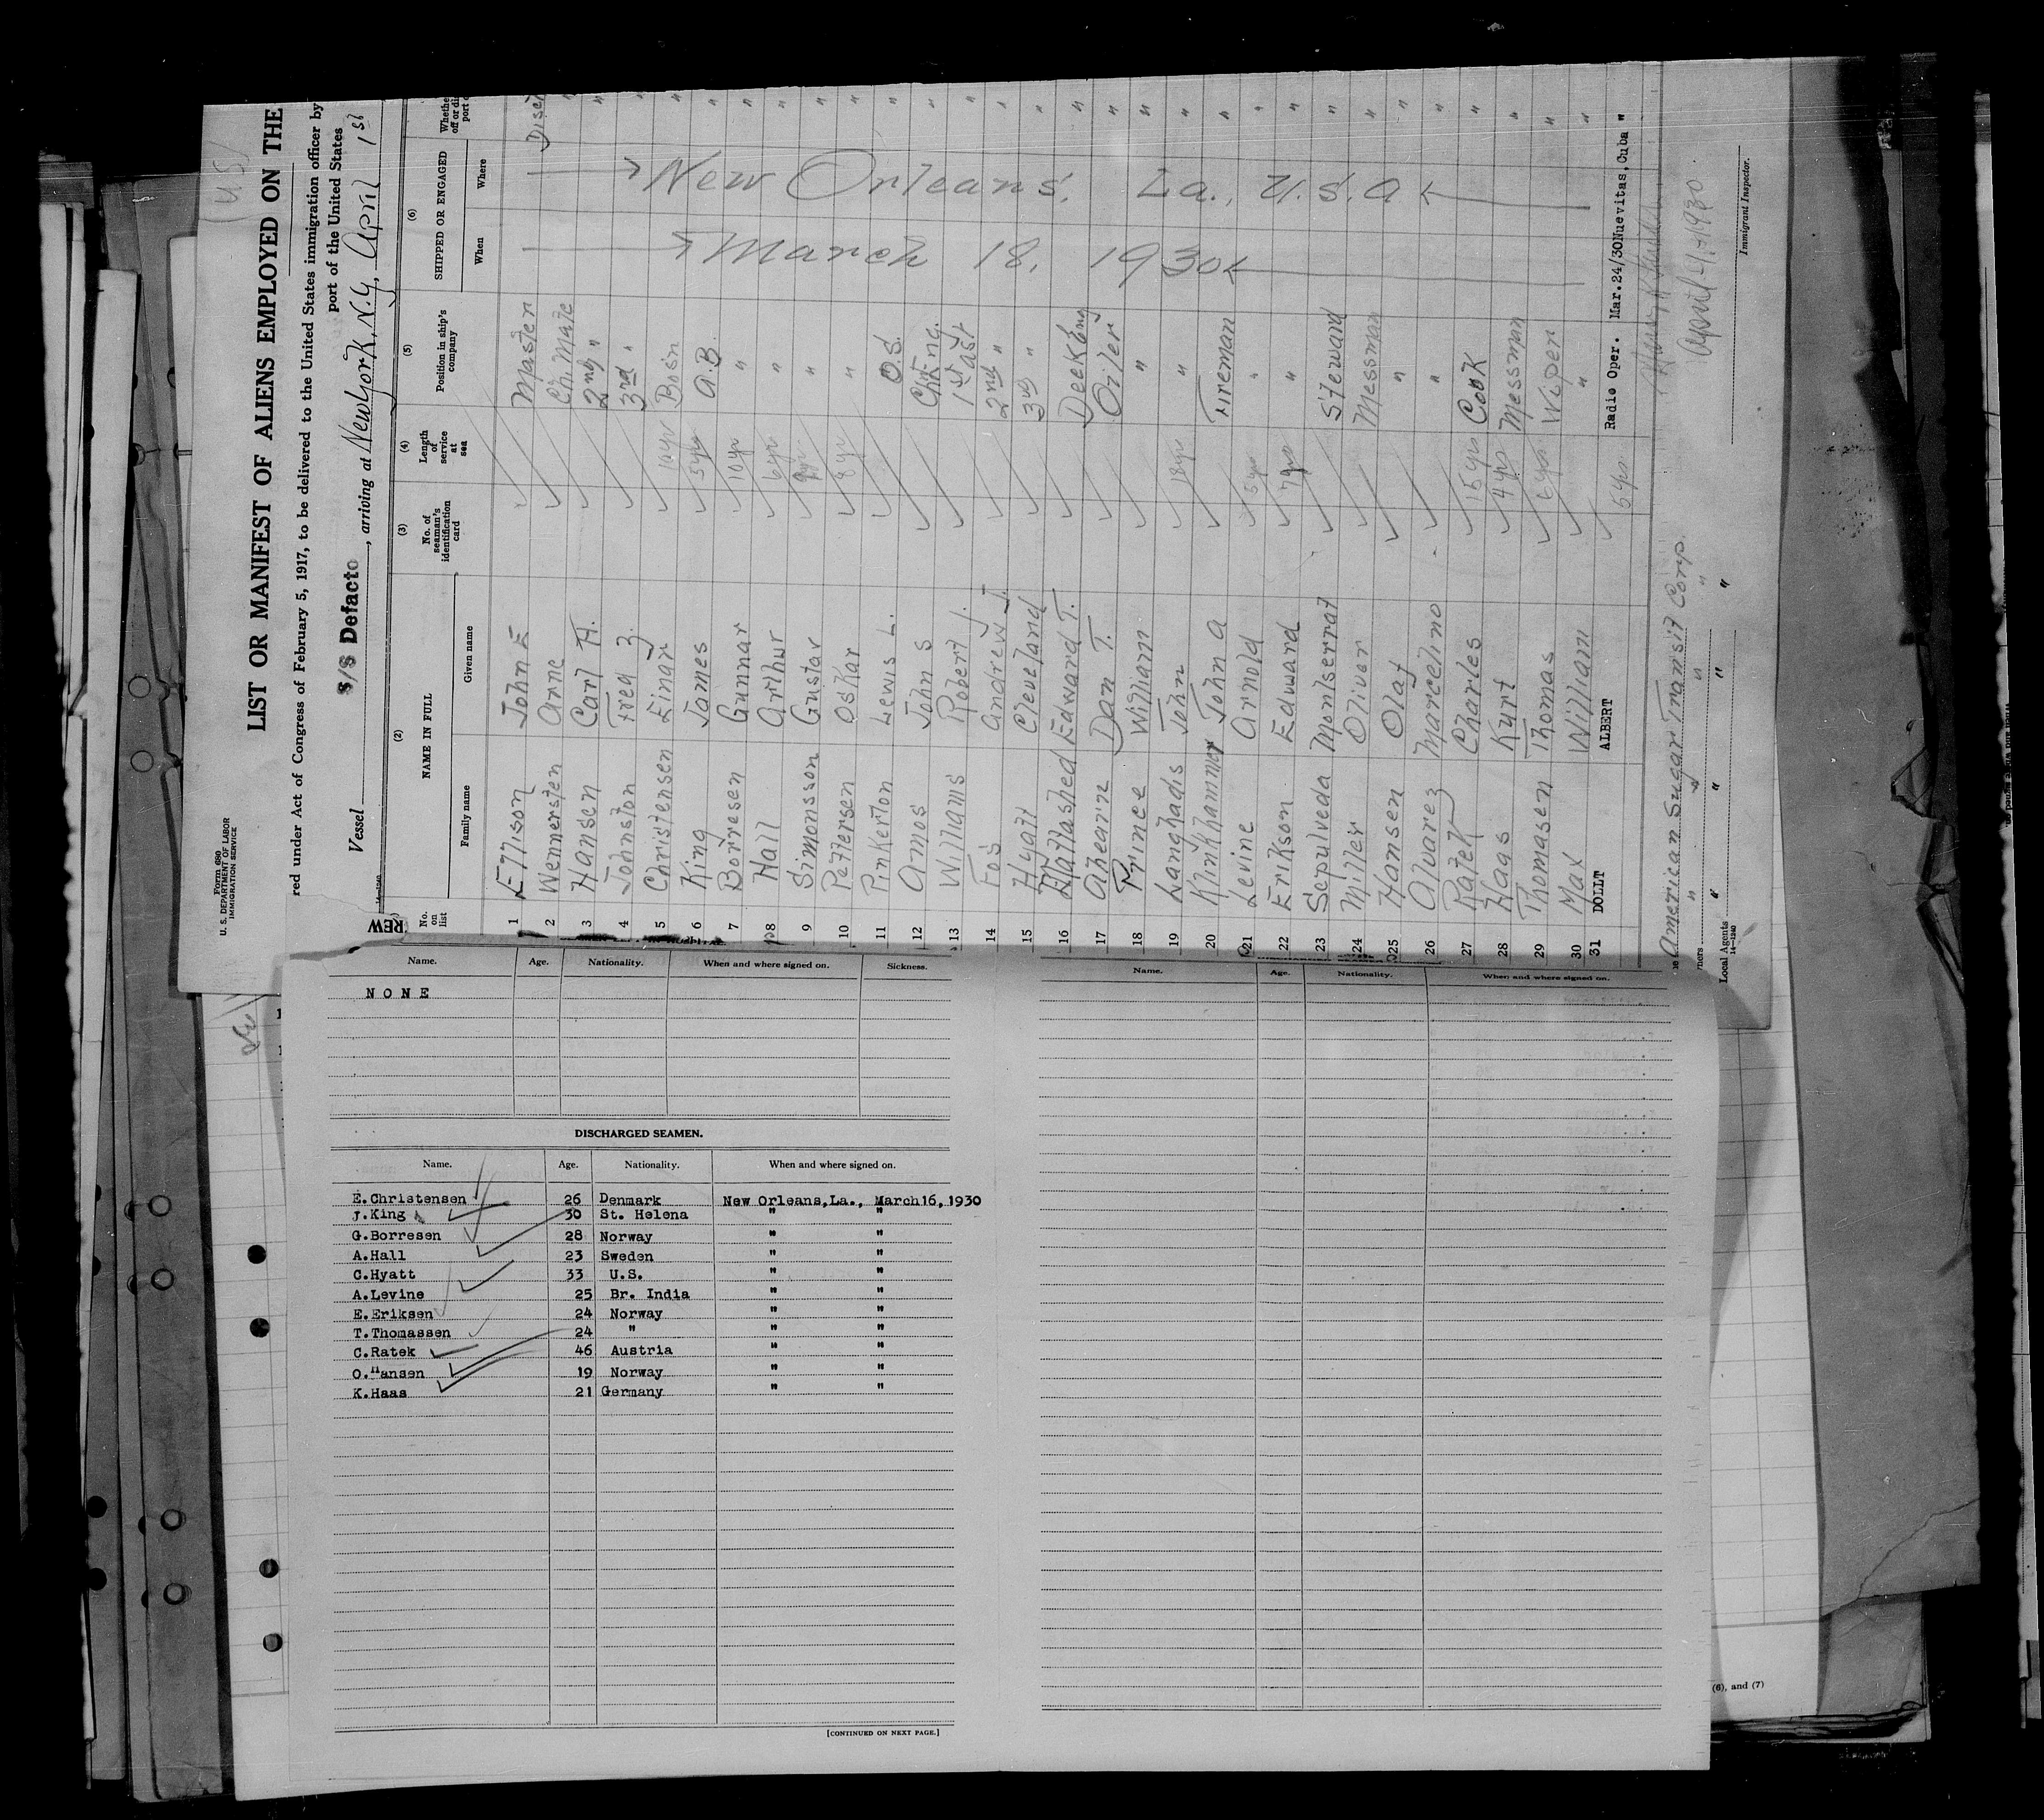 (U.S)
Form 680
U. S. DEPARTMENT OF LABOR
IMMIGRATION SERVICE
LIST OR MANIFEST OF ALIENS EMPLOYED ON THE
red under Act of Congress of February 5, 1917, to be delivered to the United States immigration officer by
port of the United States
Vessel S/S Defacto, arriving at New York, N.Y, April 1st
REW
(2) (3) (4) (5) (6)
No. on list NAME IN FULL No. of seaman's identification card Length of service at sea Position in ship's company SHIPPED OR ENGAGED
Family name Given name When Where
March 18, 1930
New Orleans, La., U.S.A
1 Ellison John E Master
2 Wennersten Arne Ch. Mate "
3 Hansen Carl H. 2nd " "
4 Johnston Fred Z. 3rd " "
5 Christensen Einar 10yr Bosin "
6 King James 5yrs A.B. "
7 Borresen Gunnar 10yr " "
8 Hall Arthur 6yr " "
9 Simonsson Gustav " "
10 Pettersen Oskar 8yr " "
11 Pinkerton Lewis L. O.S. "
12 Amos John S "
13 Williams Robert J. 1st "
14 Fos Andrew J. 2nd " "
15 Hyatt Cleveland 3rd " "
16 Edward T. "
17 Ahearn Dan T. Oiler "
18 Prince William " "
19 Langhadis John 18yrs " "
20 Klinkhammer John A Fireman "
21 Levine Arnold 5yrs " "
22 Erikson Edward 7yrs " "
23 Sepulveda Montserrat Steward "
24 Miller Oliver Messman "
25 Hansen Olaf " "
26 Alvarez Marcelino " "
27 Ratek Charles 15yrs Cook "
28 Haas Kurt 4yrs Messman "
29 Thomasen Thomas 6yrs Wiper "
30 Max William " "
31 DOLLT ALBERT 5yrs. Radio Oper. Mar.24/30 Nuevitas, Cuba "
American Sugar Transit Corp.
" " " "
Local Agents " " " "
14—1240
April 1/1930.
Immigrant Inspector.
Name. Age. Nationality. When and where signed on. Sickness.
NONE
DISCHARGED SEAMEN.
Name. Age. Nationality. When and where signed on.
E.Christensen 26 Denmark New Orleans,La., March16,1930
J.King 30 St. Helena " "
G.Borresen 28 Norway " "
A.Hall 23 Sweden " "
C.Hyatt 33 U.S. " "
A.Levine 25 Br. India " "
E.Eriksen 24 Norway " "
T.Thomassen 24 " " "
C.Ratek 46 Austria " "
O.Hansen 19 Norway " "
K.Haas 21 Germany " "
[CONTINUED ON NEXT PAGE.]
Name. Age. Nationality. When and where signed on.
(6), and (7)